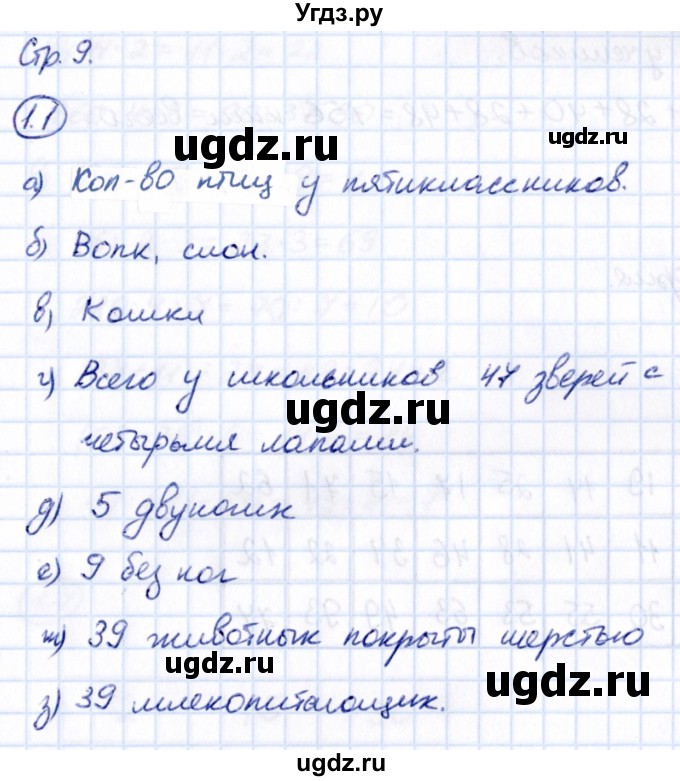 Угдз.ру
Стр. 9.
1.1
ugdz.ru
ugdz.ru
а) Кол-во птиц у пятиклассников.
б) Волк, слон.
в) Кошки
г) Всего у школьников 47 зверей с
ugdz.ru
четырьмя лапами.
д) 5 двуногих
е) 9 без ног
ж) 39 животных покрыты шерстью
ugdz.ru
ugdz.ru
з) 39 млекопитающих.